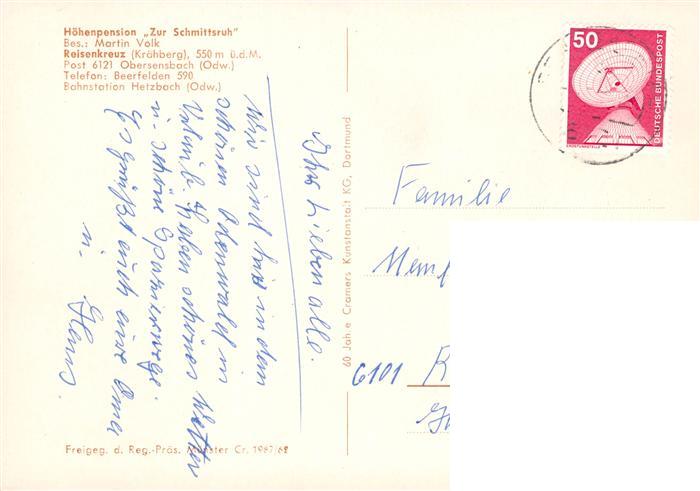 Höhenpension „Zur Schmittsruh"
Bes.: Martin Volk
Reisenkreuz (Krähberg), 550 m ü.d.M.
Post 6121 Obersensbach (Odw.)
Telefon: Beerfelden 590
Bahnstation Hetzbach (Odw.)
Ihr Lieben alle.
Wir sind hier in dem
schönen Odenwald in
Urlaub. Haben schönes Wetter
u. schöne Spazierwege.
Es grüßt euch eure Oma
u.
60 Jahre Cramers Kunstanstalt KG, Dortmund
Freigeg. d. Reg.-Präs. Münster Cr. 1967/68
50
DEUTSCHE BUNDESPOST
ERDEFUNKSTELLE
Familie
6101